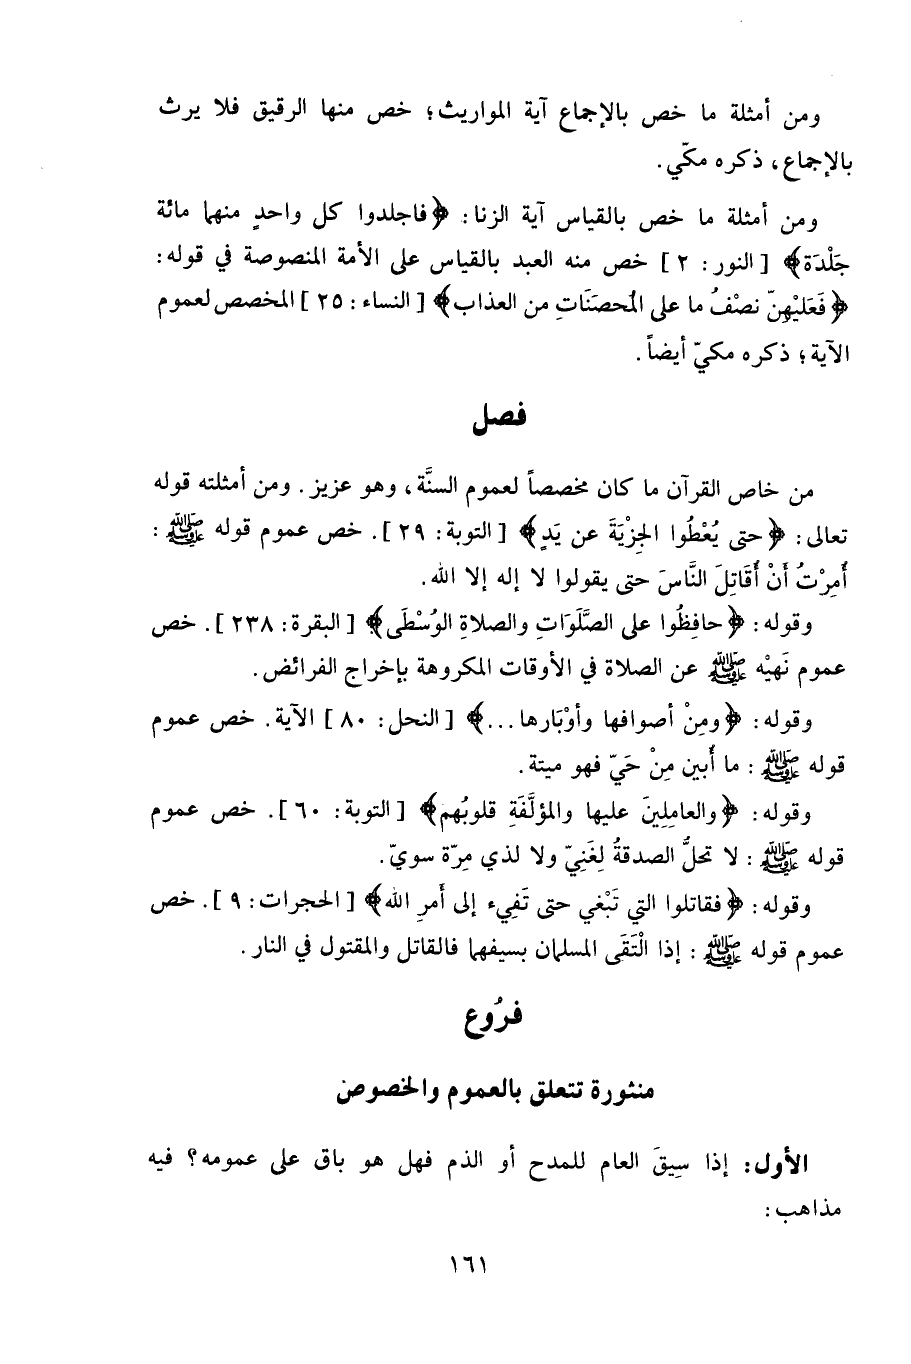 ومن أمثلة ما خص بالإجماع آية المواريث؛ خص منها الرقيق فلا يرث
بالإجماع، ذكره مكّي.
ومن أمثلة ما خص بالقياس آية الزنا: ﴿فاجلدوا كل واحدٍ منهما مائة
جَلْدَة﴾ [النور: ٢] خص منه العبد بالقياس على الأمة المنصوصة في قوله:
﴿فَعَلَيْهِنّ نصْفُ ما على المُحصَنَاتِ من العذاب﴾ [النساء: ٢٥] المخصص لعموم
الآية؛ ذكره مكيّ أيضاً.
فصل
من خاص القرآن ما كان مخصصاً لعموم السنَّة، وهو عزيز. ومن أمثلته قوله
تعالى: ﴿حتى يُعْطُوا الجِزْيَةَ عن يَدٍ﴾ [التوبة: ٢٩]. خص عموم قوله ﷺ:
أُمِرْتُ أَنْ أُقَاتِلَ النَّاسَ حتى يقولوا لا إله إلا الله.
وقوله: ﴿حافِظُوا على الصَّلَوَاتِ والصلاةِ الوُسْطَى﴾ [البقرة: ٢٣٨]. خص
عموم نَهيْه ﷺ عن الصلاة في الأوقات المكروهة بإخراج الفرائض.
وقوله: ﴿ومِنْ أصوافها وأوْبَارها...﴾ [النحل: ٨٠] الآية. خص عموم
قوله ﷺ: ما أُبين مِنْ حَيّ فهو ميتة.
وقوله: ﴿والعامِلِينَ عليها والمؤلَّفَةِ قلوبُهم﴾ [التوبة: ٦٠]. خص عموم
قوله ﷺ: لا تحلُّ الصدقةُ لِغَنِيّ ولا لذي مِرّة سويّ.
وقوله: ﴿فقاتلوا التي تَبْغي حتى تَفِيء إلى أمرِ الله﴾ [الحجرات: ٩]. خص
عموم قوله ﷺ: إذا الْتَقَى المسلمان بسيفهما فالقاتل والمقتول في النار.
فرُوع
منثورة تتعلق بالعموم والخصوص
الأول: إذا سِيقَ العام للمدح أو الذم فهل هو باق على عمومه؟ فيه
مذاهب:
١٦١